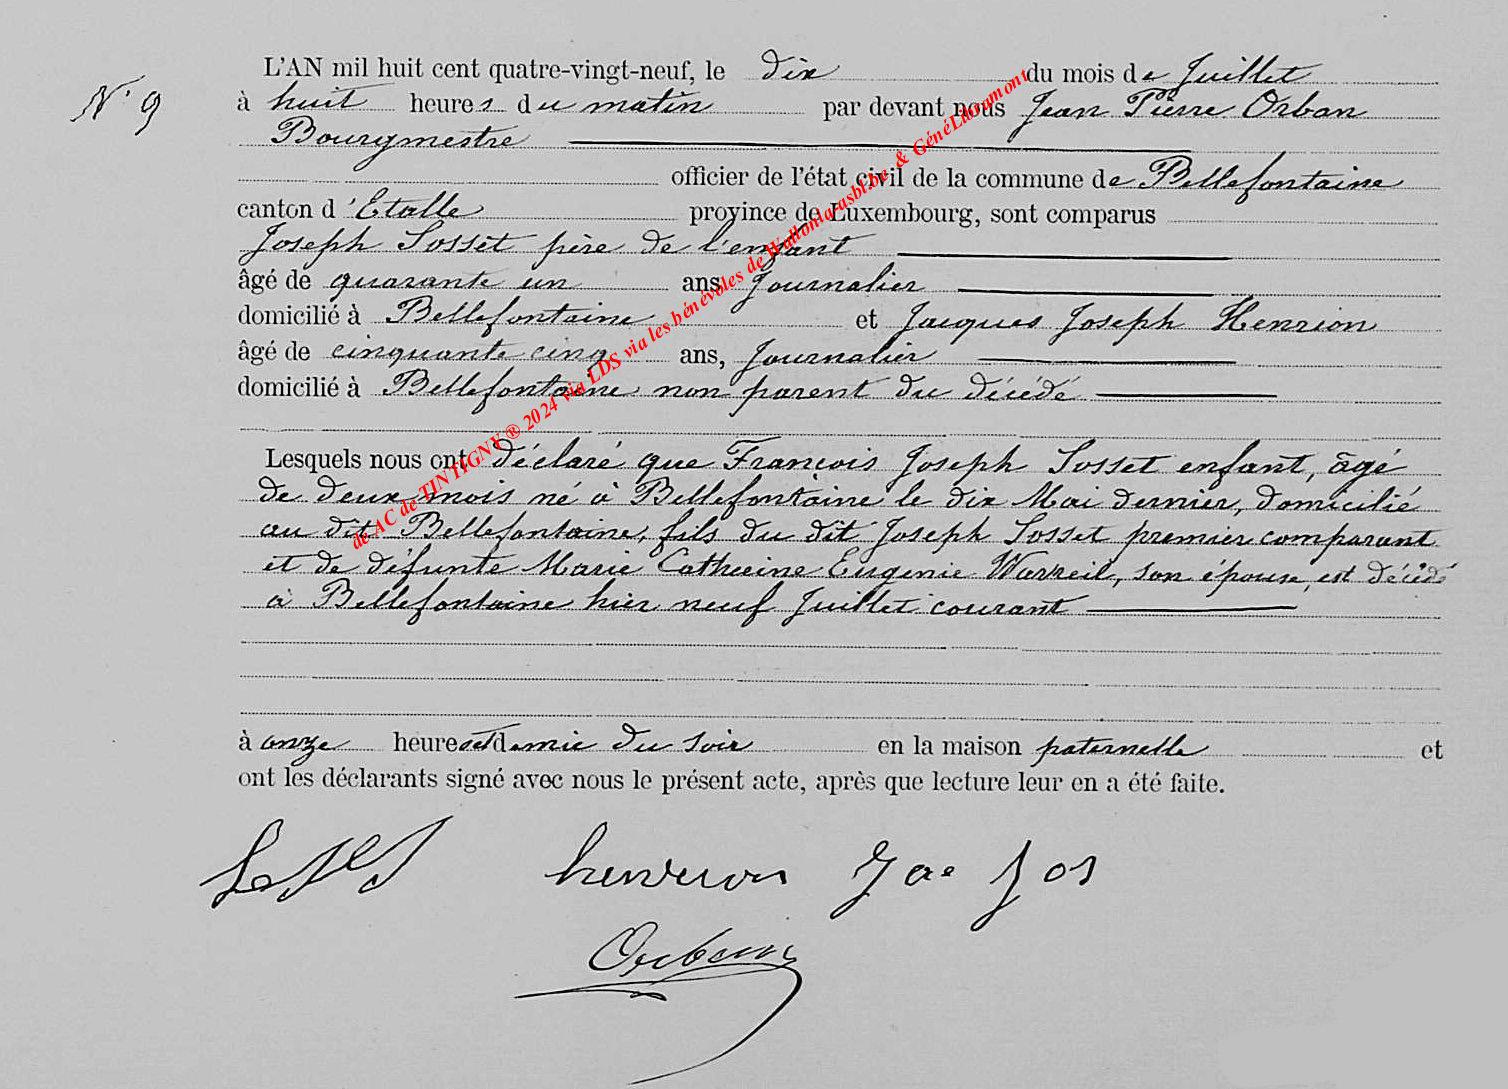 N° 9
L'AN mil huit cent quatre-vingt-neuf, le dix du mois de Juillet
à huit heures du matin par devant nous Jean Pierre Orban
Bourgmestre
officier de l'état civil de la commune de Bellefontaine
canton d'Etalle province de Luxembourg, sont comparus
Joseph Sosset père de l'enfant
âgé de quarante un ans Journalier
domicilié à Bellefontaine et Jacques Joseph Henrion
âgé de cinquante cinq ans, Journalier
domicilié à Bellefontaine non parent du décédé
Lesquels nous ont déclaré que François Joseph Sosset enfant, âgé
de deux mois né à Bellefontaine le dix Mai dernier, domicilié
au dit Bellefontaine, fils du dit Joseph Sosset premier comparant
et de défunte Marie Catherine Eugenie Warzeil, son épouse, est décédé
à Bellefontaine hier neuf Juillet courant
à onze heures et demie du soir en la maison paternelle et
ont les déclarants signé avec nous le présent acte, après que lecture leur en a été faite.
henrion Jac Jos
Orban
de AC de TINTIGNY ® 2024 via LDS via les bénévoles de Wallonia-asbl.be & GénéLibramont